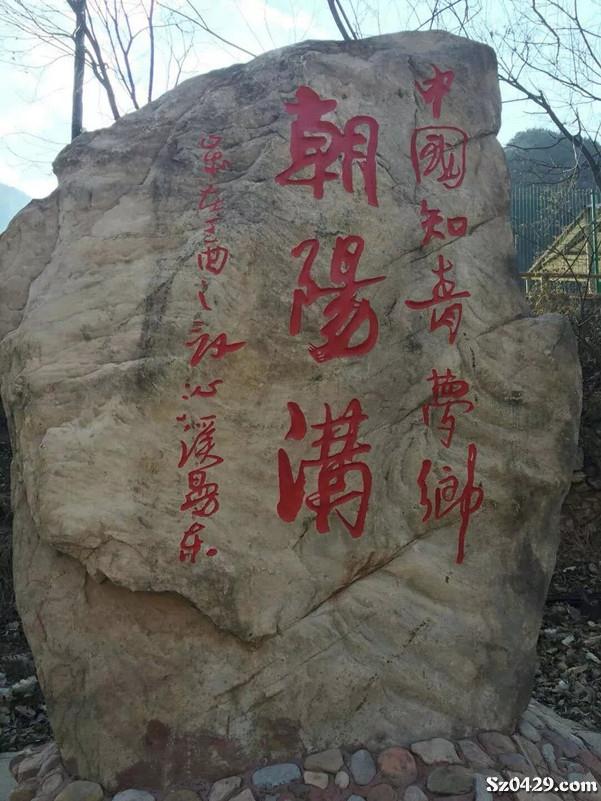 中國知青夢鄉
朝陽溝
歲在丁酉之秋沁溪晏東
Sz0429.com